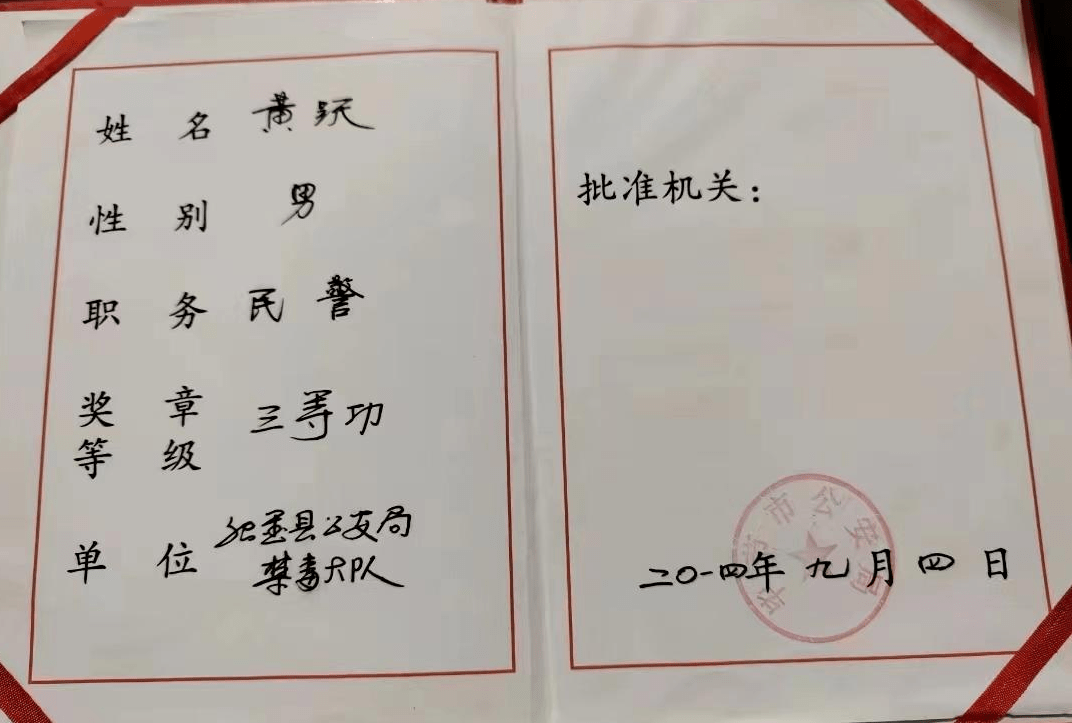 姓 名 黄跃
性 别 男
职 务 民警
奖 章
等 级 三等功
单 位 县公安局
禁毒大队
批准机关：
市公安局
二〇一四年九月四日